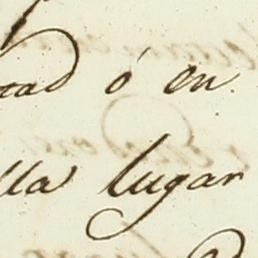 tad ó en
lla lugar